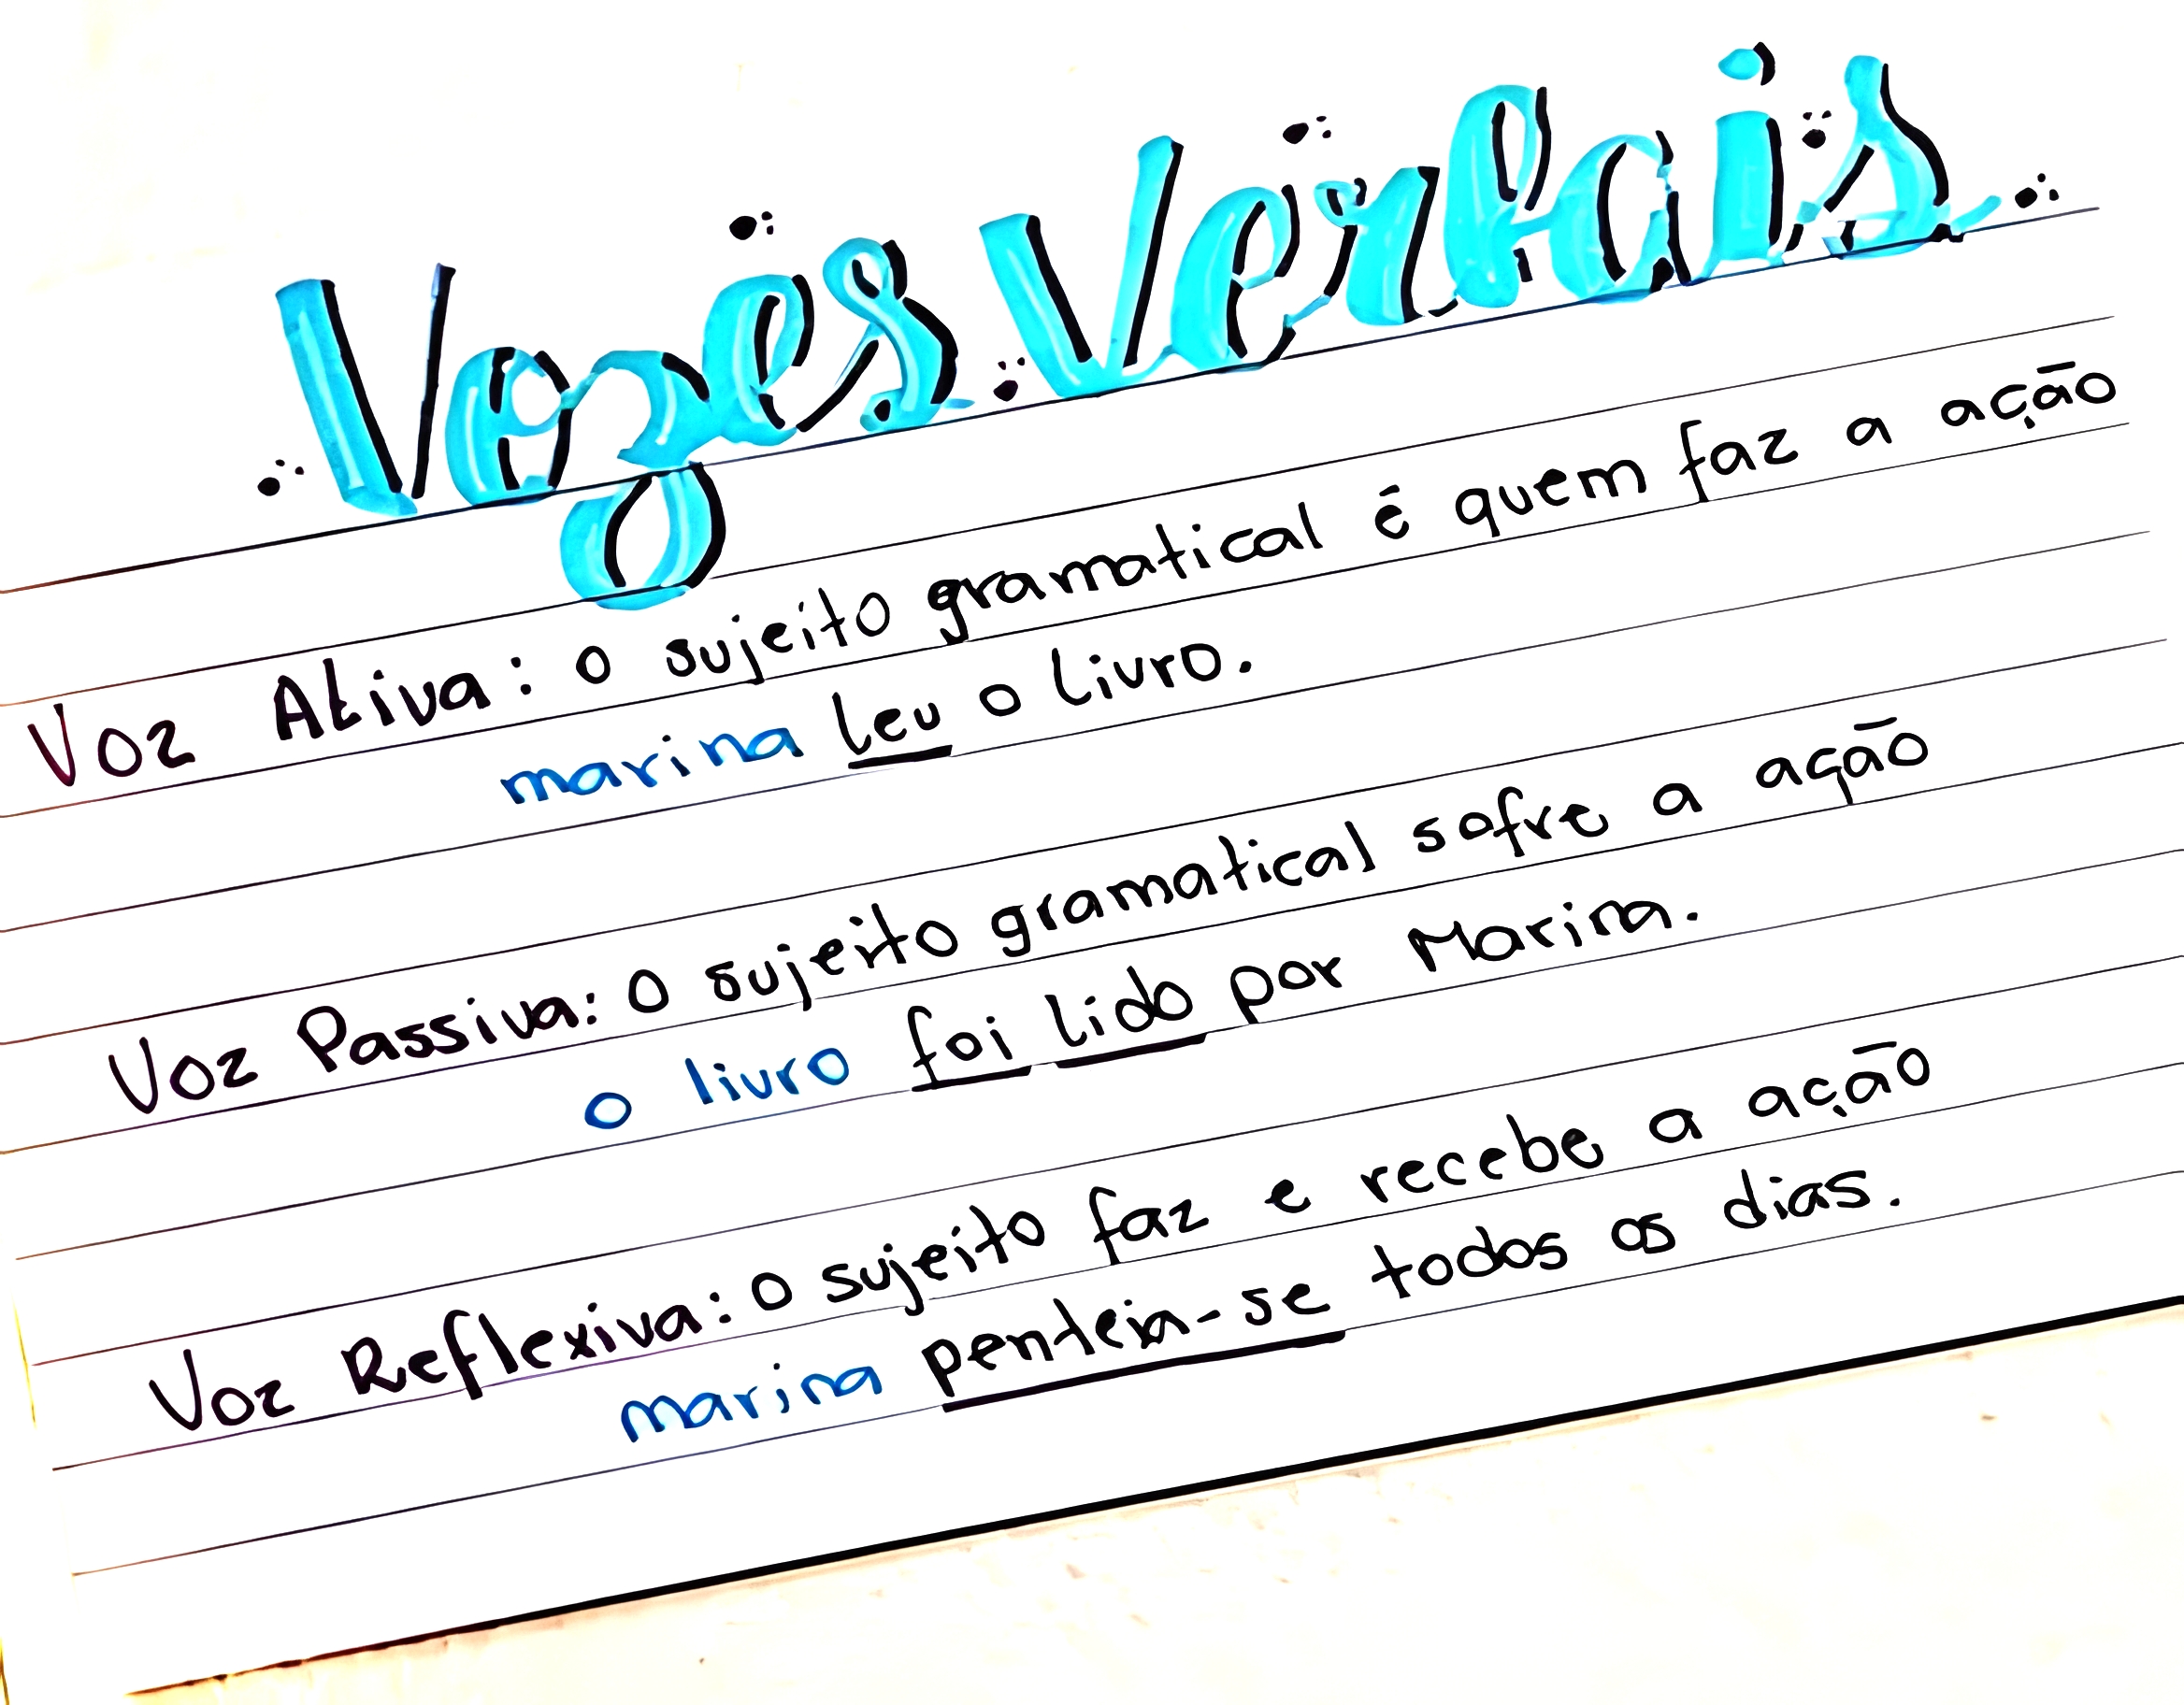 Vozes Verbais
Voz Ativa: o sujeito gramatical é quem faz a ação
marina leu o livro.
Voz Passiva: O sujeito gramatical sofre a ação
o livro foi lido por Marina.
Voz Reflexiva: o sujeito faz e recebe a ação
marina penteia-se todos os dias.